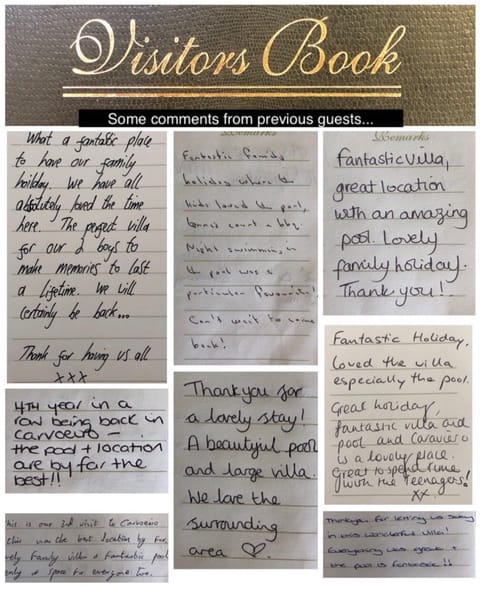 Visitors Book
Some comments from previous guests...
What a fantastic place
to have our family
holiday. We have all
absolutely loved the time
here. The perfect villa
for our 2 boys to
make memories to last
a lifetime. We will
certainly be back...
Thank for having us all
xxx
4TH year in a
row being back in
Carvoeiro –
the pool + location
are by far the
best!!
This is our 2nd visit to Carvoeiro
this was the best location by far.
Lovely Family villa & Fantastic pool
& space for everyone too.
Remarks
Fantastic family
holiday where the
kids loved the pool,
tennis court & bbq.
Night swimming in
the pool was a
particular favourite!
Can't wait to come
back!
Thankyou for
a lovely stay!
A beautyful pool
and large villa.
We love the
surrounding
area ♡.
Remarks
Fantastic Villa,
great location
with an amazing
pool. Lovely
family holiday.
Thank you!
Fantastic Holiday.
loved the villa
especially the pool.
Great holiday,
fantastic villa and
pool and Caraviero
is a lovely place.
Great to spend time
with the Teenagers!
xx
Thankyou for letting us stay
in this wonderful villa!
Everything was great +
the pool is fantastic !!